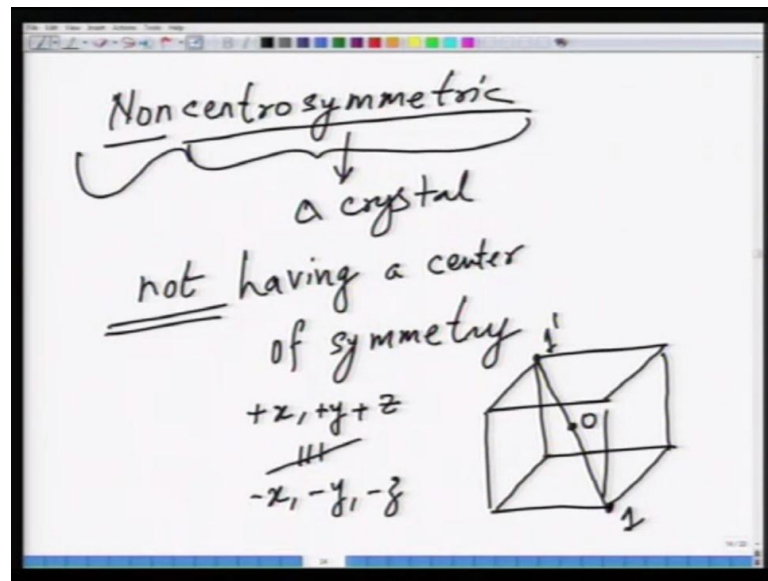 Noncentrosymmetric
a crystal
not having a center
of symmetry
1'
+x, +y + z
O
-x, -y, -z
1